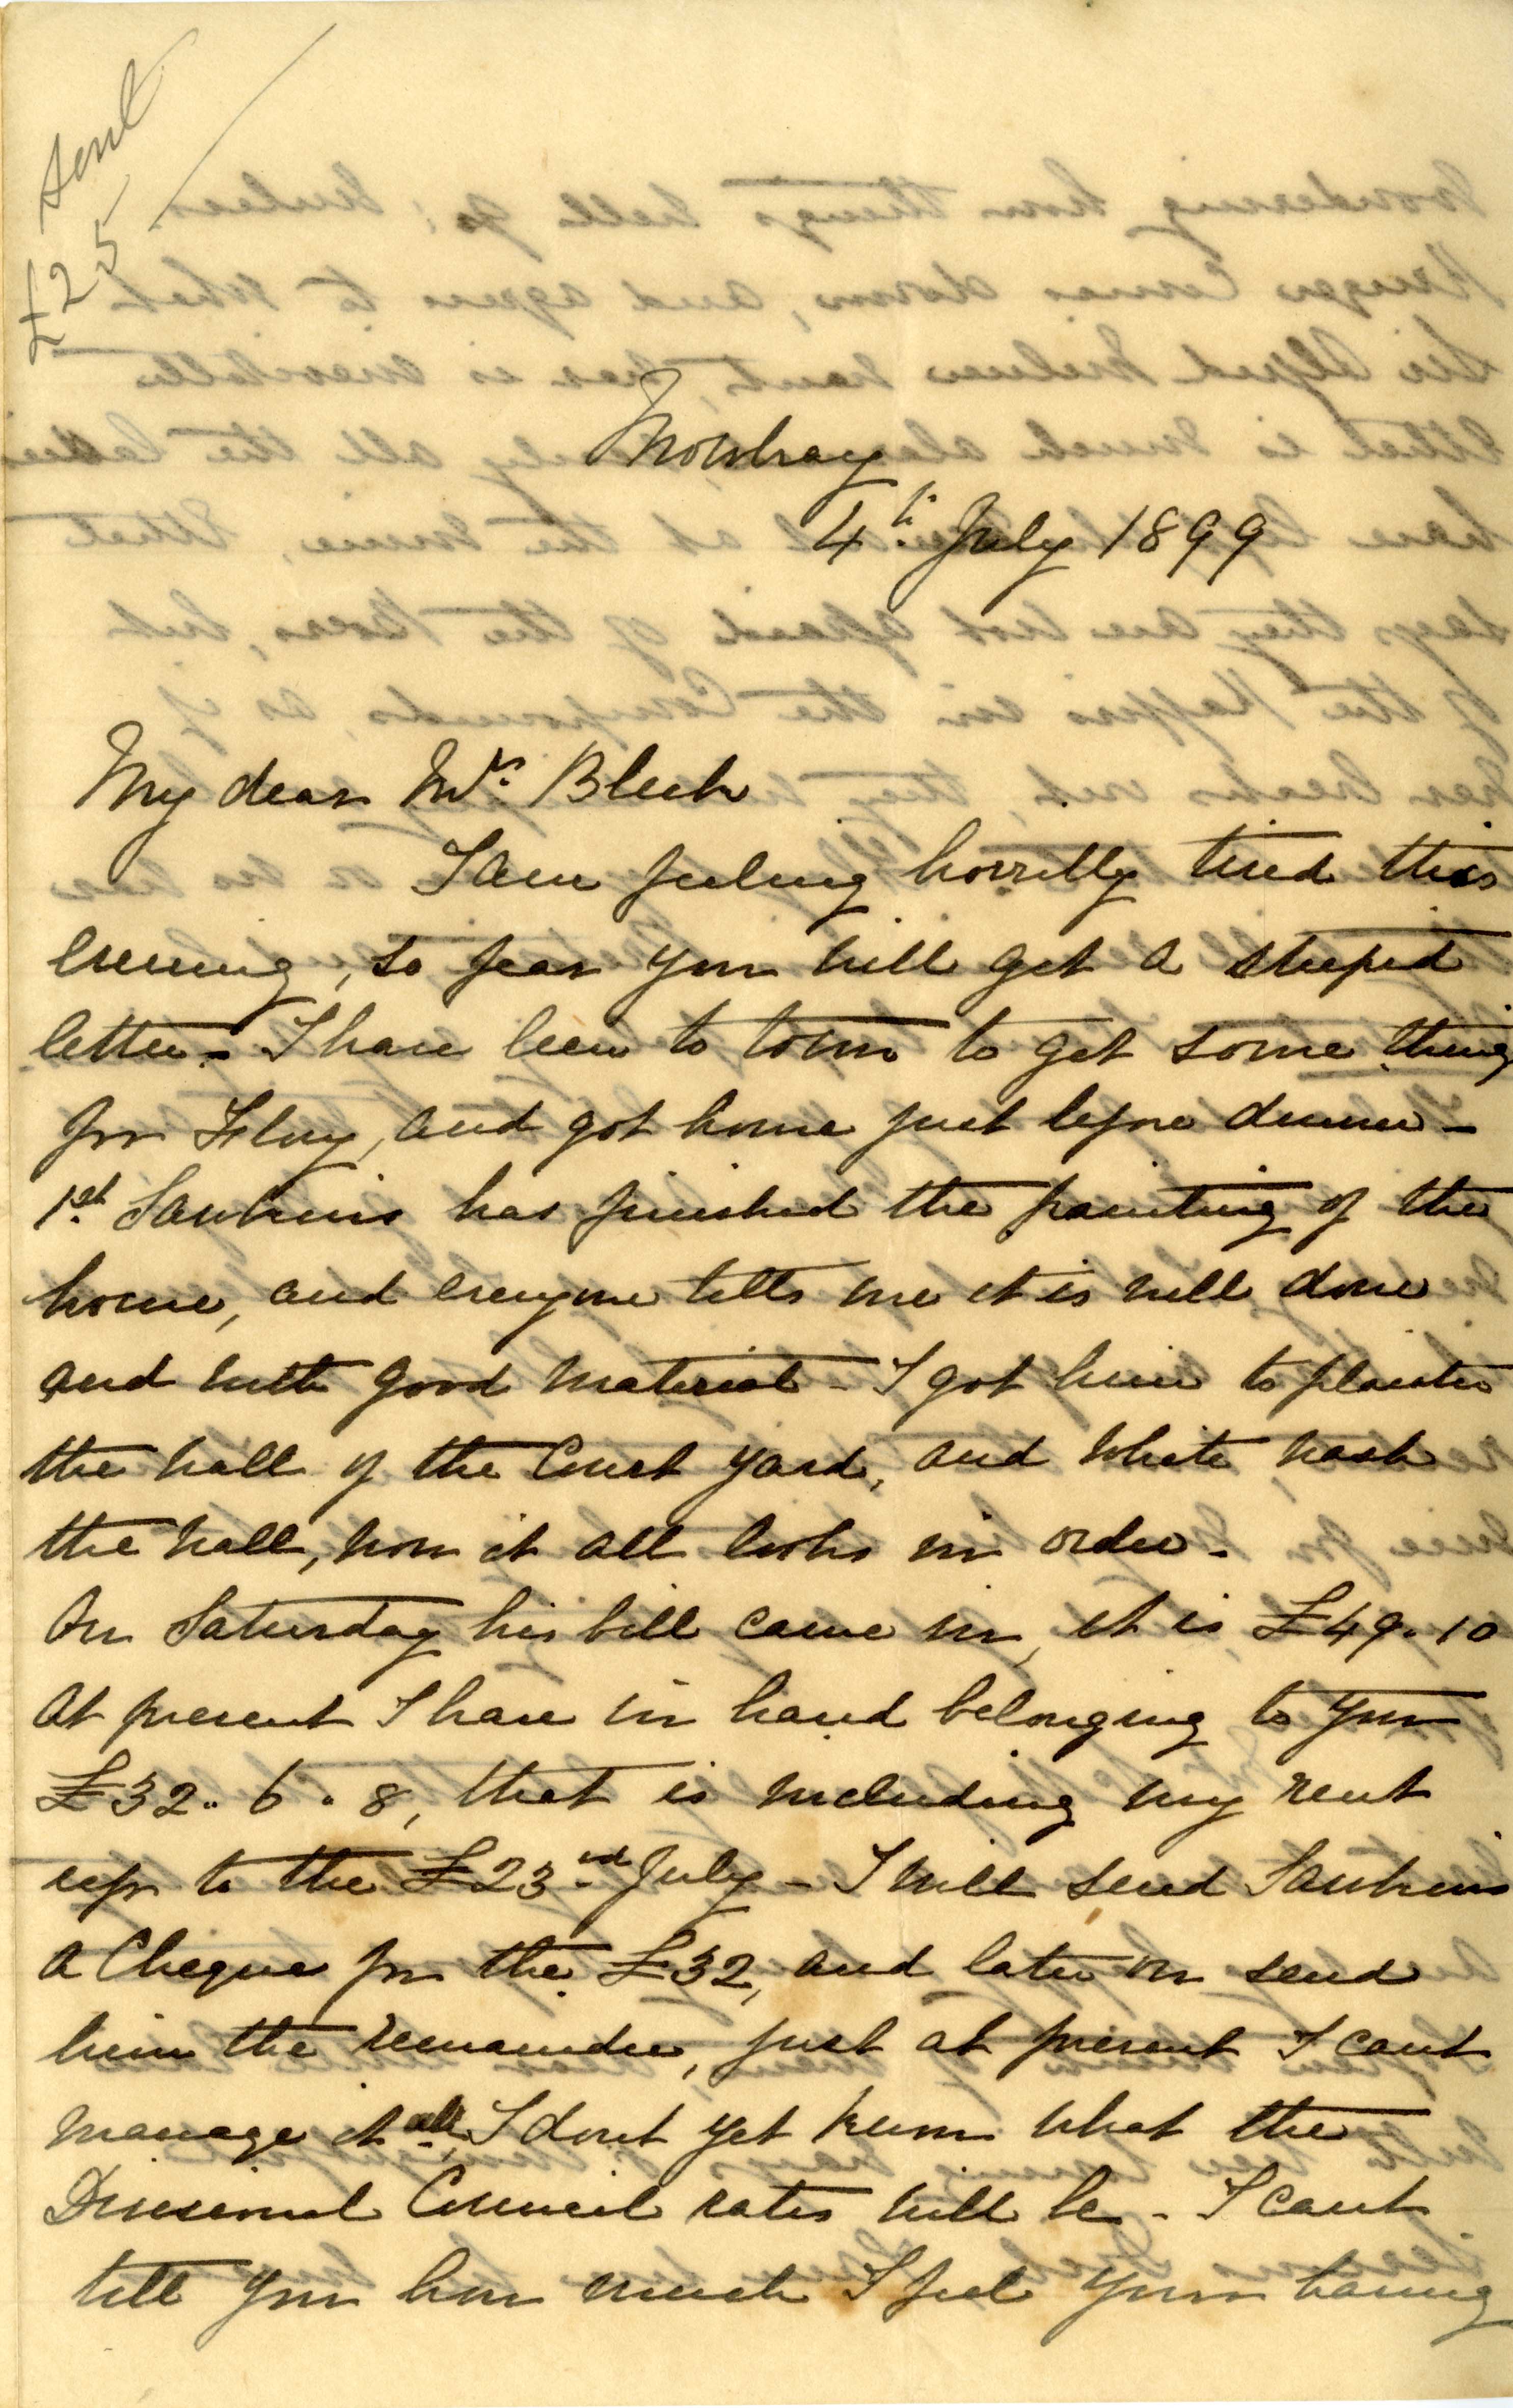 Sent
£25
Mowbray
4th July 1899
My dear Mrs Bleek
I am feeling horribly tired this
evening, so fear you will get a stupid
letter - I have been to town to get some things
for Floy, and got home just before dinner -
1st Sawkins has finished the painting of the
house, and everyone tells me it is well done
and with good material - I got him to plaster
the wall of the Court yard, and white wash
the wall, now it all looks in order -
On Saturday his bill came in, it is £49.10
At present I have in hand belonging to you
£32.6.8, that is including my rent
up to the £23rd July - I will send Sawkins
a Cheque for the £32, and later on send
him the remainder, just at present I cant
manage it all, I dont yet know what the
Divisional Council rates will be - I cant
tell you how much I feel your having